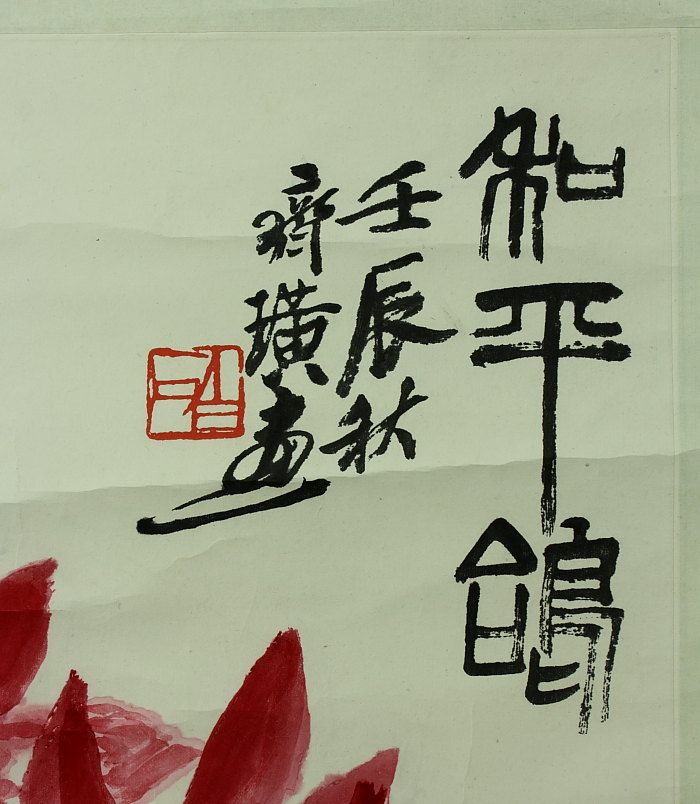 和平鴿
壬辰秋
齊璜畫
白石